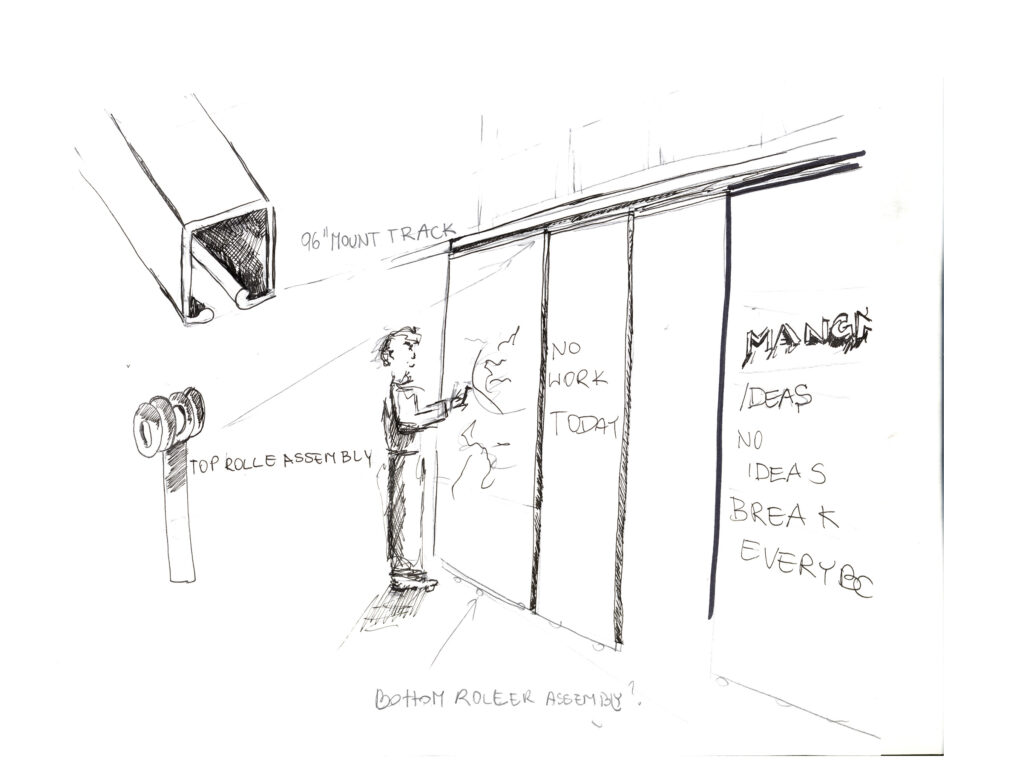 96" MOUNT TRACK
TOP ROLLE ASSEMBLY
NO
WORK
TODAY
MANGA
IDEAS
NO
IDEAS
BREAK
EVERYBO
BOTTOM ROLEER ASSEMBLY?